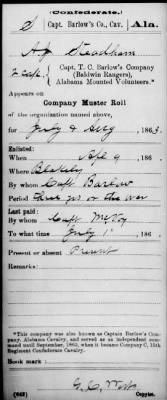 (Confederate.)
S | Capt. Barlow's Co., Cav. | Ala.
A J Steadham
Capt. T. C. Barlow's Company
(Baldwin Rangers),
Alabama Mounted Volunteers.*
Appears on
Company Muster Roll
of the organization named above,
for July & Aug, 186 3
Enlisted:
When Apl 9, 186
Where Blakely
By whom Capt Barlow
Period three yrs or the war
Last paid:
By whom Capt McVoy
To what time July 1, 186
Present or absent Present
Remarks:
*This company was also known as Captain Barlow's Company, Alabama Cavalry, and served as an independent command until September, 1863, when it became Company C, 15th Regiment Confederate Cavalry.
Book mark:
(642)